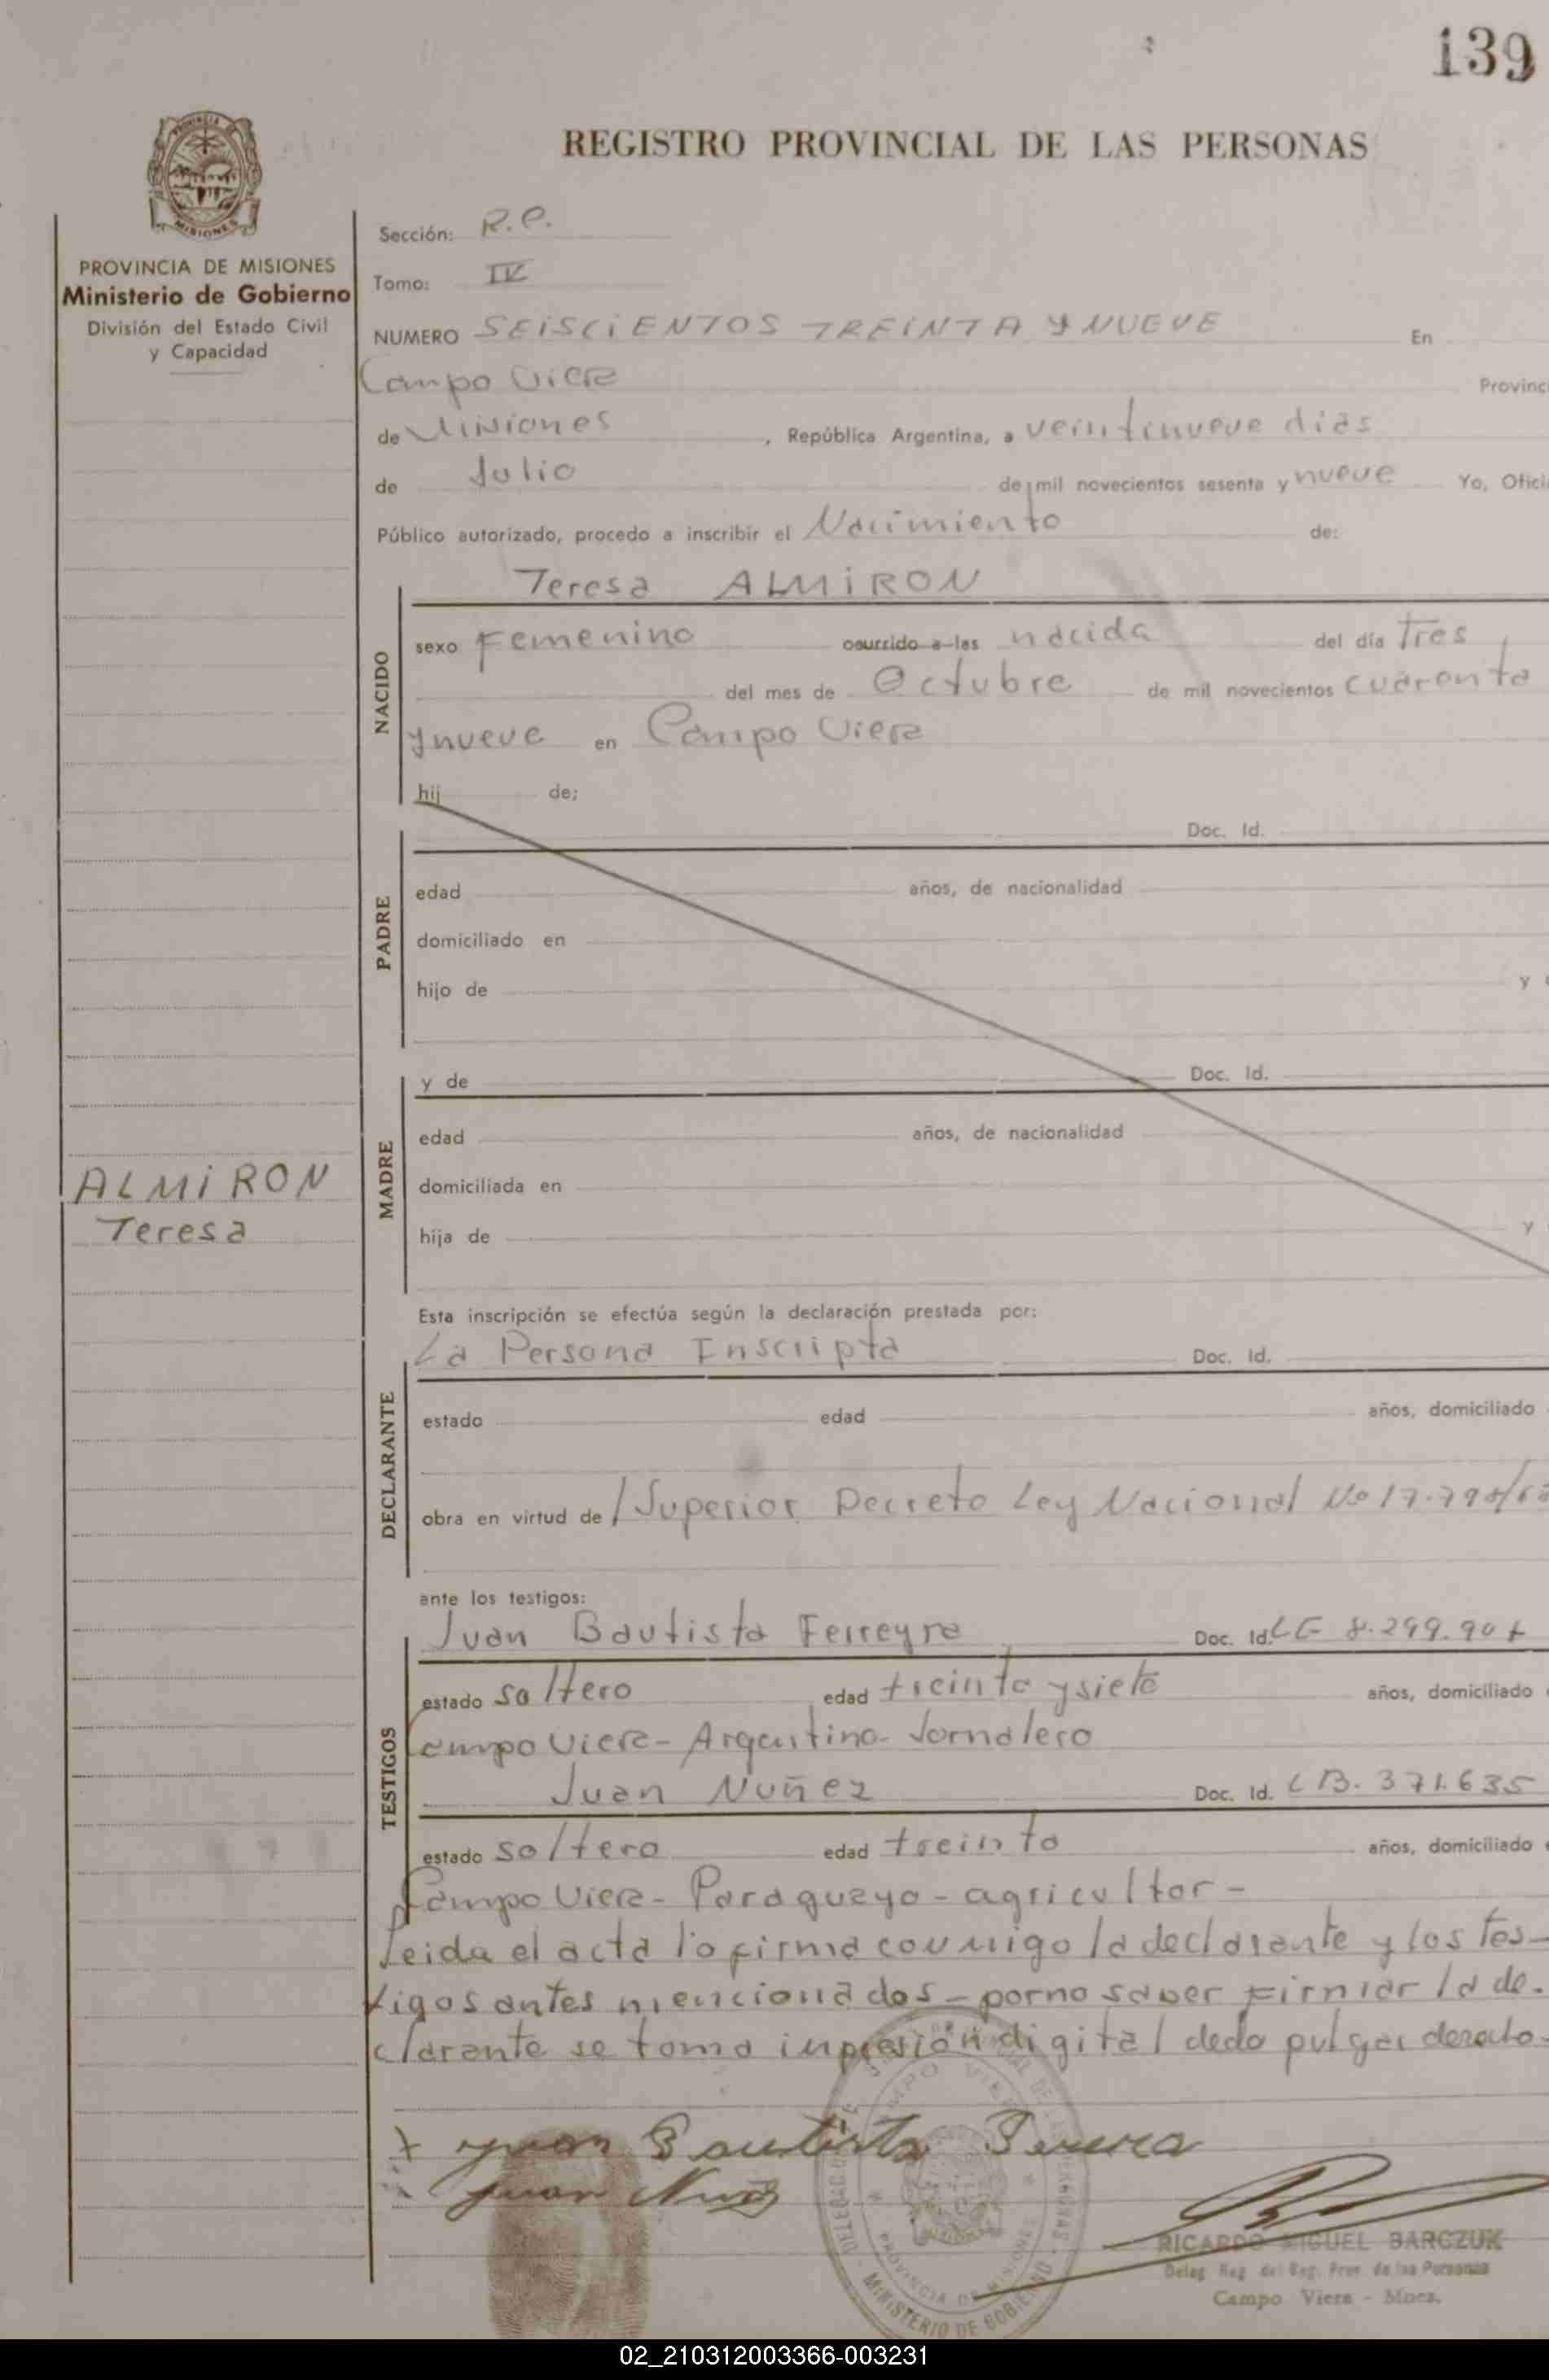 139
REGISTRO PROVINCIAL DE LAS PERSONAS
PROVINCIA DE MISIONES
Ministerio de Gobierno
División del Estado Civil
y Capacidad
Sección: R.P.
Tomo: IV
NUMERO SEISCIENTOS TREINTA Y NUEVE En
Campo Viera Provinc
de Misiones , República Argentina, a veintinueve dias
de Julio de mil novecientos sesenta y nueve Yo, Ofici
Público autorizado, procedo a inscribir el Nacimiento de:
NACIDO
Teresa ALMIRON
sexo Femenino ocurrido a las nacida del día Tres
del mes de Octubre de mil novecientos cuarenta
y nueve en Campo Viera
hij de;
PADRE
Doc. Id.
edad años, de nacionalidad
domiciliado en
hijo de y
MADRE
y de Doc. Id.
edad años, de nacionalidad
domiciliada en
hija de y
ALMIRON
Teresa
Esta inscripción se efectúa según la declaración prestada por:
DECLARANTE
La Persona Inscripta Doc. Id.
estado edad años, domiciliado
obra en virtud de / Superior Decreto Ley Nacional No
ante los testigos:
TESTIGOS
Juan Bautista Ferreyra Doc. Id. LE
estado soltero edad treinta y siete años, domiciliado
Campo Viera - Argentino - Jornalero
Juan Nuñez Doc. Id. CB. 371.635
estado soltero edad treinta años, domiciliado
Campo Viera - Paraguayo - agricultor -
Leida el acta la firma conmigo la declarante y los tes-
tigos antes mencionados - por no saber firmar la de-
clarante se toma inpresión digital dedo pulgar
Juan Bautista
Juan
CAMPO VIERA
PROVINCIA DE MISIONES
MINISTERIO DE GOBIERNO
RICARDO MIGUEL BARCZUK
Deleg Reg del Reg. Prov. de las Personas
Campo Viera - Mnes.
02_210312003366-003231